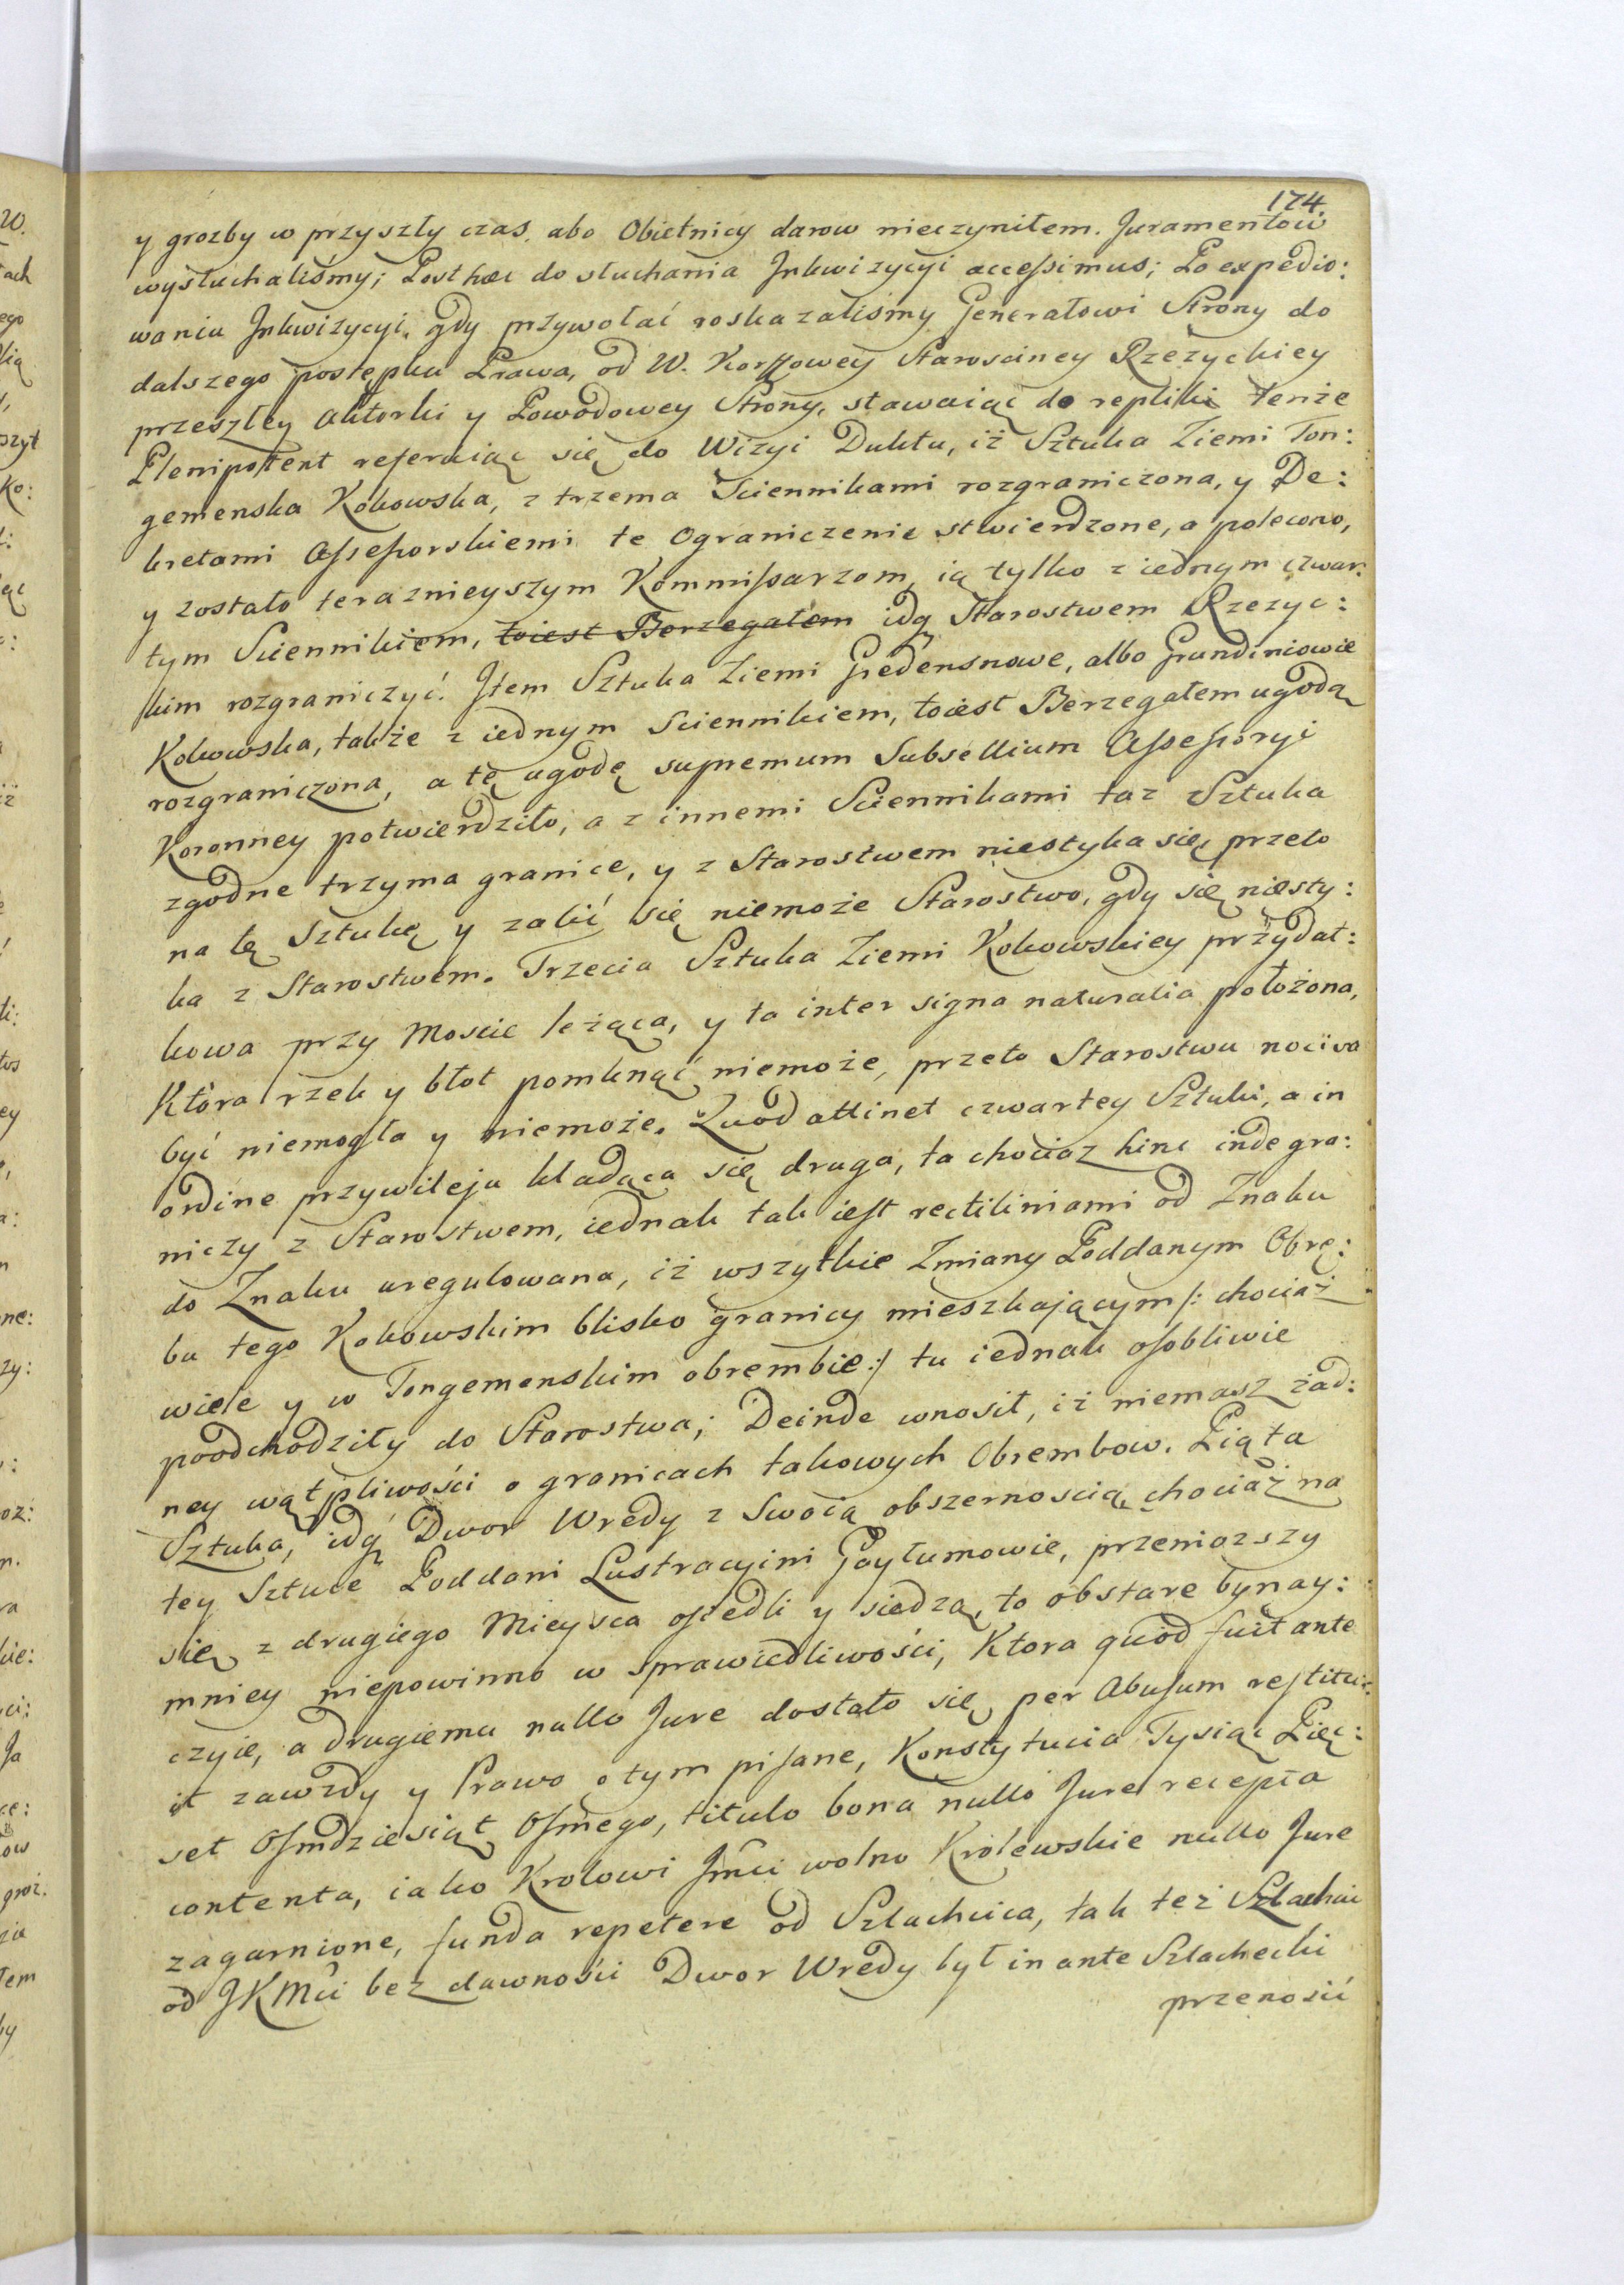 174.
y grozby w przyszły czas, abo Obietnicy darow nieczyniłem. Juramentow
wysłuchaliśmy; Post hæc do słuchania Inkwizycyi accessimus; Po expedio:
waniu Inkwizycyi, gdy przywołać roskazaliśmy Generałowi Strony do
dalszego postępku Prawa, od W. Korffowey Starosciney Rzezyckiey
przeszłey Aktorki y Powodowey Strony, stawaiąc do repliki tenże
Plenipotent referuiąc się do Wizyi Duktu, iż Sztuka Ziemi Ton:
gemenska Kokowska, z trzema Sciennikami rozgraniczona, y De:
kretami Assessorskiemi te Ograniczenie stwierdzone, a polecono,
y zostało teraznieyszym Kommissarzom, ią tylko z iednym czwar:
tym Sciennikiem, toiest Berzegałem idq Starostwem Rzezyc:
kim rozgraniczyć. Item Sztuka Ziemi Gredensnowe, albo Grundiniowie
Kokowska, także z iednym Sciennikiem, toiest Berzegałem ugodą
rozgraniczona, a tę ugodę supremum Subsellium Assessoryi
Koronney potwierdziło, a z innemi Sciennikami taz Sztuka
zgodne trzyma granice, y z Starostwem niestyka się, przeto
na tę Sztukę y zalić się niemoże Starostwo, gdy się niesty:
ka z Starostwem. Trzecia Sztuka Ziemi Kokowskiey przydat:
kowa przy Moscie leżąca, y ta inter signa naturalia położona,
Która rzek y błot pomknąć niemoże, przeto Starostwu nociva
być niemogła y niemoże. Quod attinet czwartey Sztuki, a in
ordine przywileju kladąca się druga, ta chociaz hinc inde gra:
niczy z Starostwem, iednak tak iest rectiliniami od Znaku
do Znaku uregulowana, iż wszytkie Zmiany Poddanym Obrę:
bu tego Kokowskim blisko granicy mieszkającym /: chociaż
wiele y w Tongemenskim obrembie :/ tu iednak osobliwie
poodchodziły do Starostwa; Deinde wnosił, iż niemasz żad:
ney wątpliwości o granicach takowych Obrembow. Piąta
Sztuka, idq Dwor Wredy z Swoią obszernoscią, chociaż na
tey Sztuce Poddani Lustracyini Gayłumowie, przeniozszy
się z drugiego Mieysca osiedli y siedzą, to obstare bynay:
mniey niepowinno w sprawiedliwości, Ktora quod fuit ante
czyie, a drugiemu nullo Jure dostało się per Abusum restitu:
it zawzdy y Prawo o tym pisane, Konstytucia Tysiąc Pięc:
set Osmdziesiąt Osmego, titulo bona nullo Jure recepta
contenta, iako Krolowi Jmći wolno Królewskie nullo Jure
zagarnione, funda repetere od Szlachcica, tak też Szlachcic
od JKMći bez dawności Dwor Wredy był in ante Szlachecki
przenosić